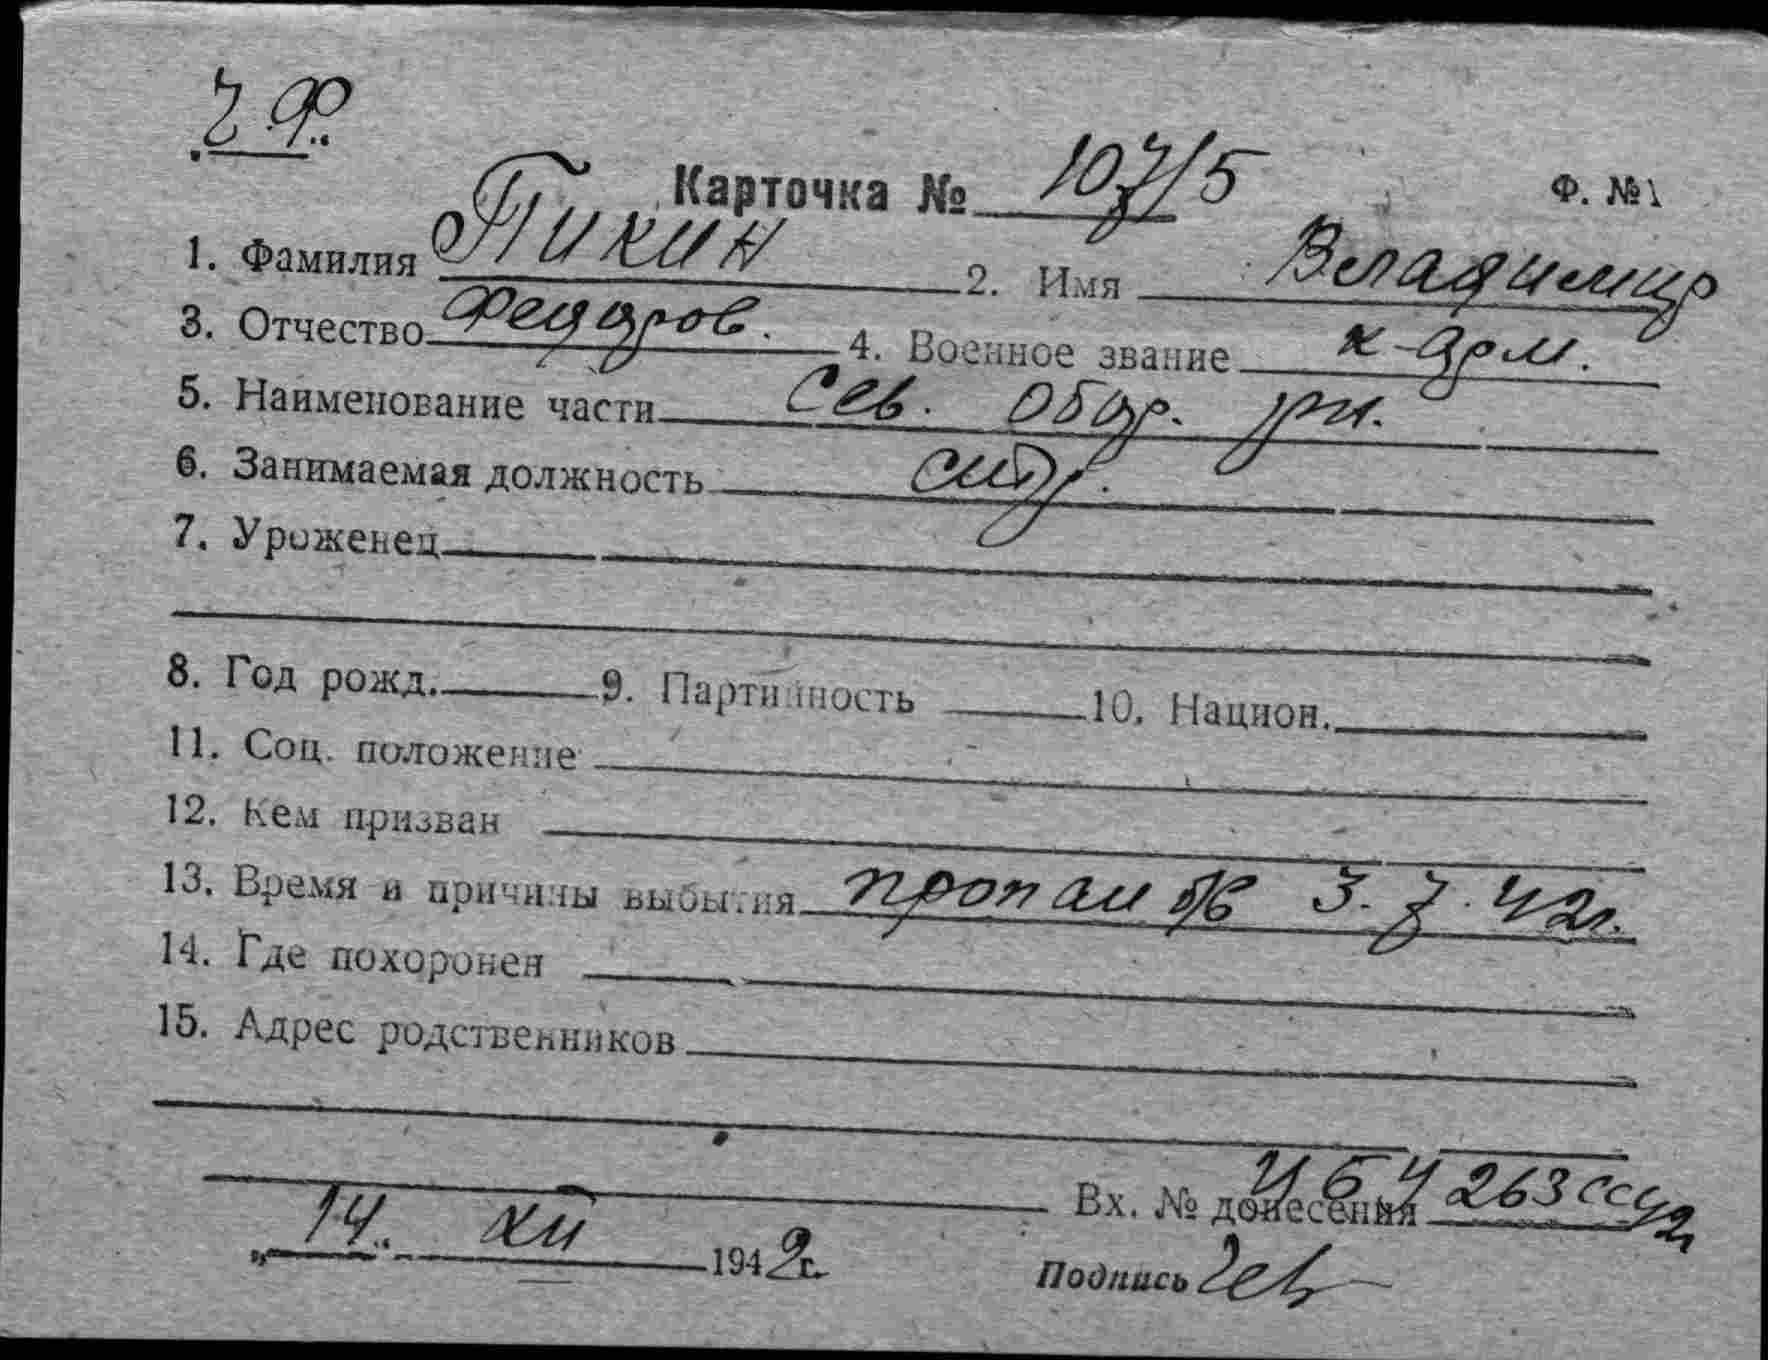 Ч.Ф.
Карточка № 107/5 Ф. №1
1. Фамилия Пикин 2. Имя Владимир
3. Отчество Федоров. 4. Военное звание к-арм.
5. Наименование части Сев. обор. рн.
6. Занимаемая должность стр.
7. Уроженец
8. Год рожд. 9. Партийность 10. Национ.
11. Соц. положение
12. Кем призван
13. Время и причины выбытия пропал б/в 3.7.42г.
14. Где похоронен
15. Адрес родственников
Вх. № донесения 263сс
„14" XII 1942г.
Подпись